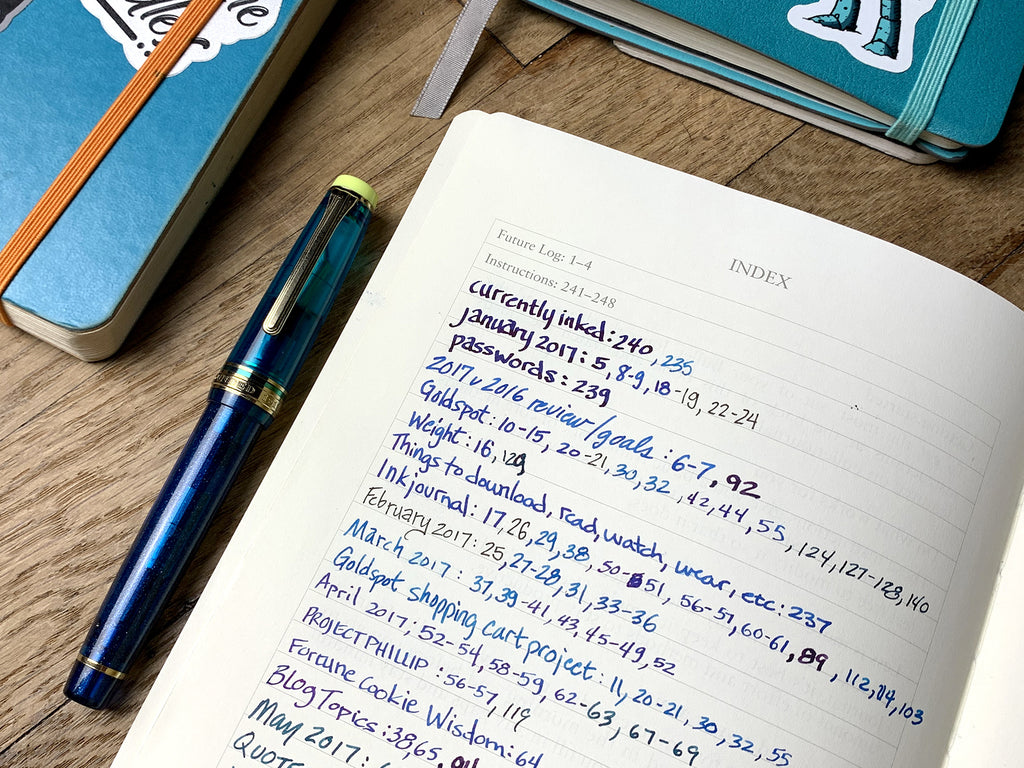 INDEX
Future Log: 1–4
Instructions: 241–248
currently inked: 240, 235
january 2017: 5, 8-9, 18-19, 22-24
passwords: 239
2017 v 2016 review/goals: 6-7, 92
Goldspot: 10-15, 20-21, 30, 32, 42, 44, 55, 124, 127-128, 140
Weight: 16,
Things to download, read, watch, wear, etc: 237
Ink journal: 17, 26, 29, 38, 50-51, 56-57, 60-61, 89, 112, 114, 103
February 2017: 25, 27-28, 31, 33-36
March 2017: 37, 39-41, 43, 45-49, 52
Goldspot shopping cart project: 11, 20-21, 30, 32, 55
April 2017: 52-54, 58-59, 62-63, 67-69
PROJECT PHILLIP: 56-57, 119
Fortune Cookie Wisdom: 64
Blog Topics: 38, 65,
May 2017:
QUOTE